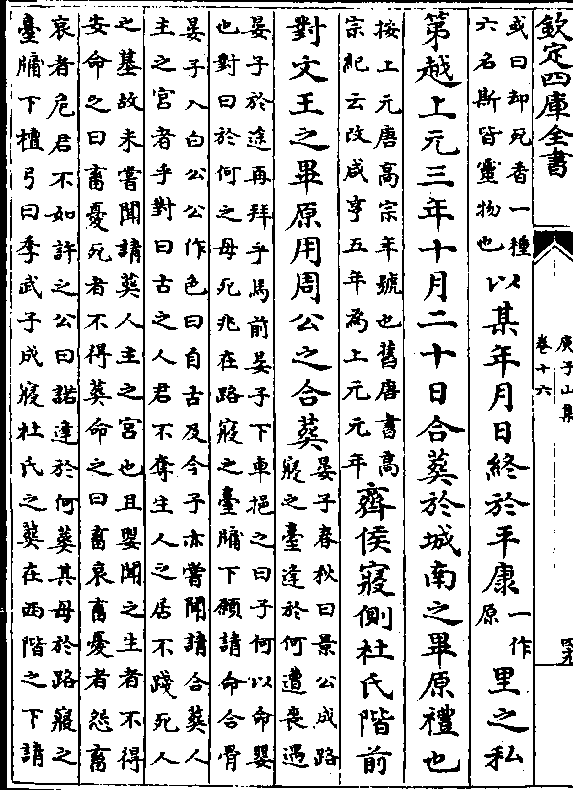 欽定四庫全書
庾子山集
卷十六
或曰却死者一種
六名斯皆靈物也
以某年月日終於平康
一作
原
里之私
第越上元三年十月二十日合葬於城南之畢原禮也
按上元唐高宗年號也舊唐書高
宗紀云改咸亨五年為上元元年
齊侯寢側杜氏階前
對文王之畢原用周公之合葬
晏子春秋曰景公成路
寢之臺逢於何遭喪遇
晏子於途再拜乎馬前晏子下車挹之曰子何以命嬰
也對曰於何之母死兆在路寢之臺牖下願請命合骨
晏子入白公公作色曰自古及今子亦嘗聞請合葬人
主之宮者乎對曰古之人君不奪生人之居不踐死人
之墓故未嘗聞請葬人主之宮也且嬰聞之生者不得
安命之曰畜憂死者不得葬命之曰畜哀畜憂者怨畜
哀者危君不如許之公曰諾逢於何葬其母於路寢之
臺牖下檀弓曰季武子成寢杜氏之葬在西階之下請